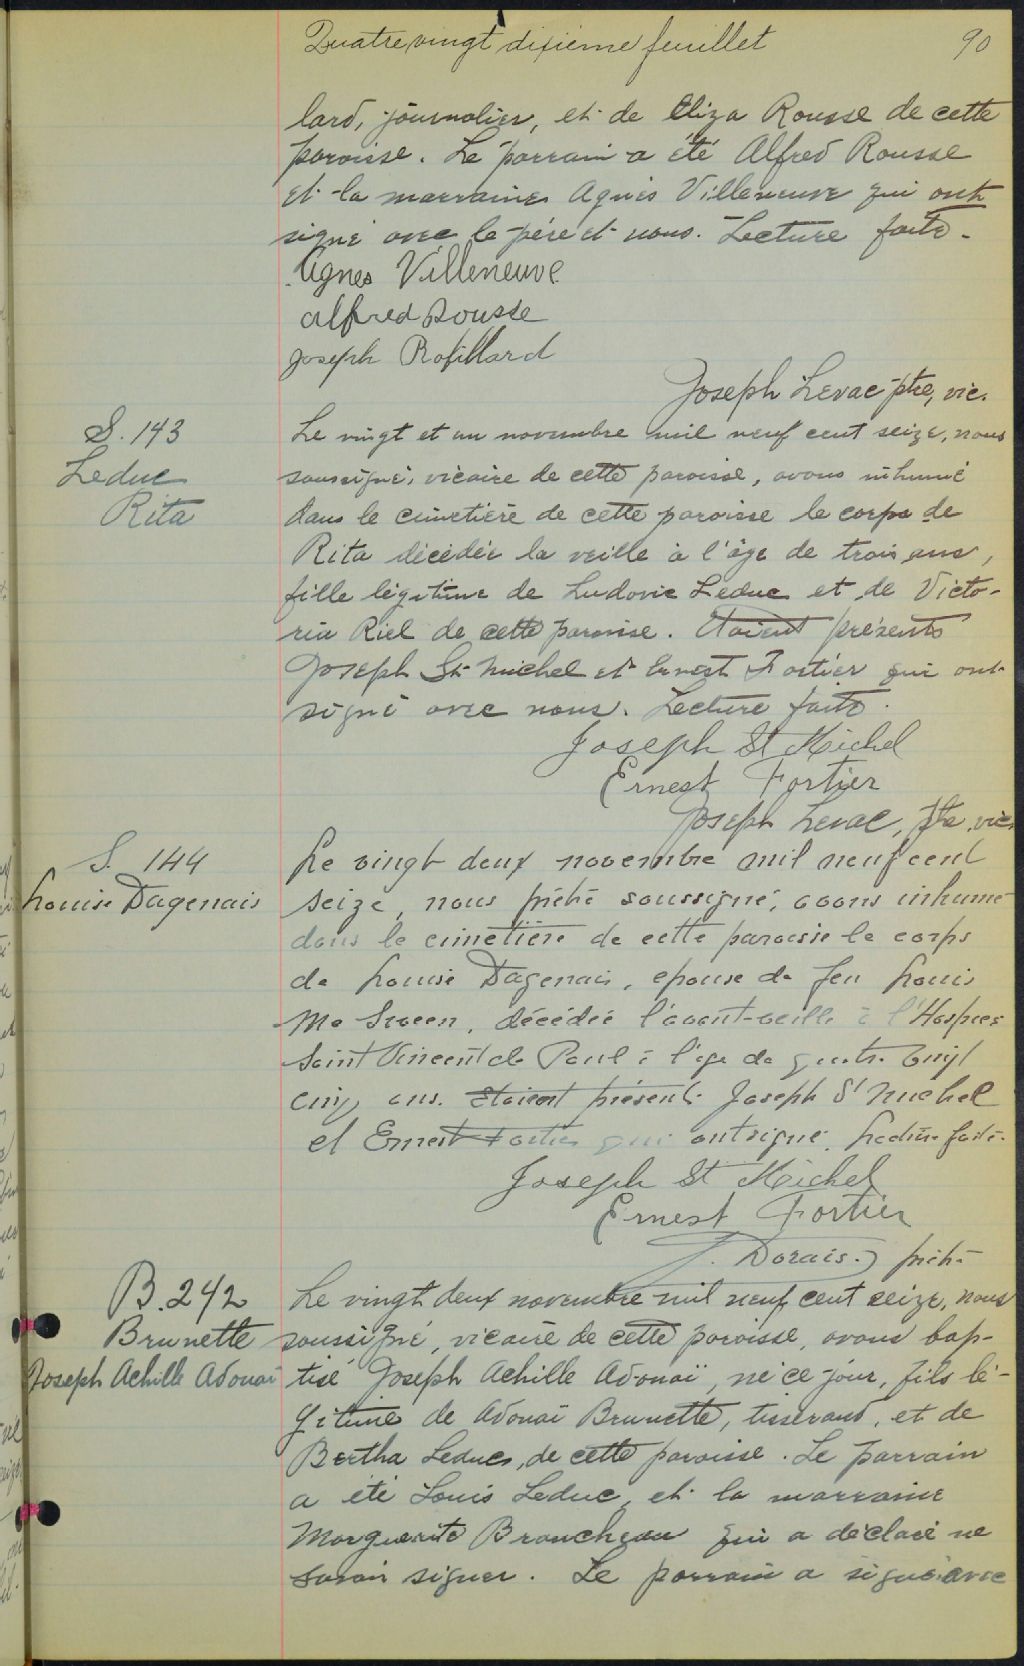 Quatre vingt dixième feuillet 90
lard, journalier, et de Eliza Rousse de cette
paroisse. Le parrain a été Alfred Rousse
et la marraine Agnès Villeneuve qui ont
signé avec le père et nous. Lecture faite.
Agnes Villeneuve
Alfred Rousse
Joseph Robillard
Joseph Levac ptre, vic.
S. 143
Leduc
Rita
Le vingt et un novembre mil neuf cent seize, nous
soussigné, vicaire de cette paroisse, avons inhumé
dans le cimetière de cette paroisse le corps de
Rita décédée la veille à l'âge de trois ans,
fille légitime de Ludovic Leduc et de Victo-
ria Riel de cette paroisse. Etaient présents
Joseph St Michel et Ernest Fortier qui ont
signé avec nous. Lecture faite.
Joseph St Michel
Ernest Fortier
Joseph Levac, ptre, vic.
S. 144
Louise Dagenais
Le vingt deux novembre mil neuf cent
seize, nous prêtre soussigné, avons inhumé
dans le cimetière de cette paroisse le corps
de Louise Dagenais, epouse de feu Louis
décédée l'avant-veille à l'Hospice
Saint Vincent de Paul à l'âge de quatre vingt
cinq ans. Etaient présents Joseph St Michel
et Ernest Fortier qui ont signé. Lecture faite.
Joseph St Michel
Ernest Fortier
Dorais. prêtre
B. 242
Brunette
Joseph Achille Adonaï
Le vingt deux novembre mil neuf cent seize, nous
soussigné, vicaire de cette paroisse, avons bap-
tisé Joseph Achille Adonaï, né ce jour, fils lé-
gitime de Adonaï Brunette, tisserand, et de
Bertha Leduc, de cette paroisse. Le parrain
a été Louis Leduc, et la marraine
Marguerite Brancheau qui a déclaré ne
savoir signer. Le parrain a signé avec